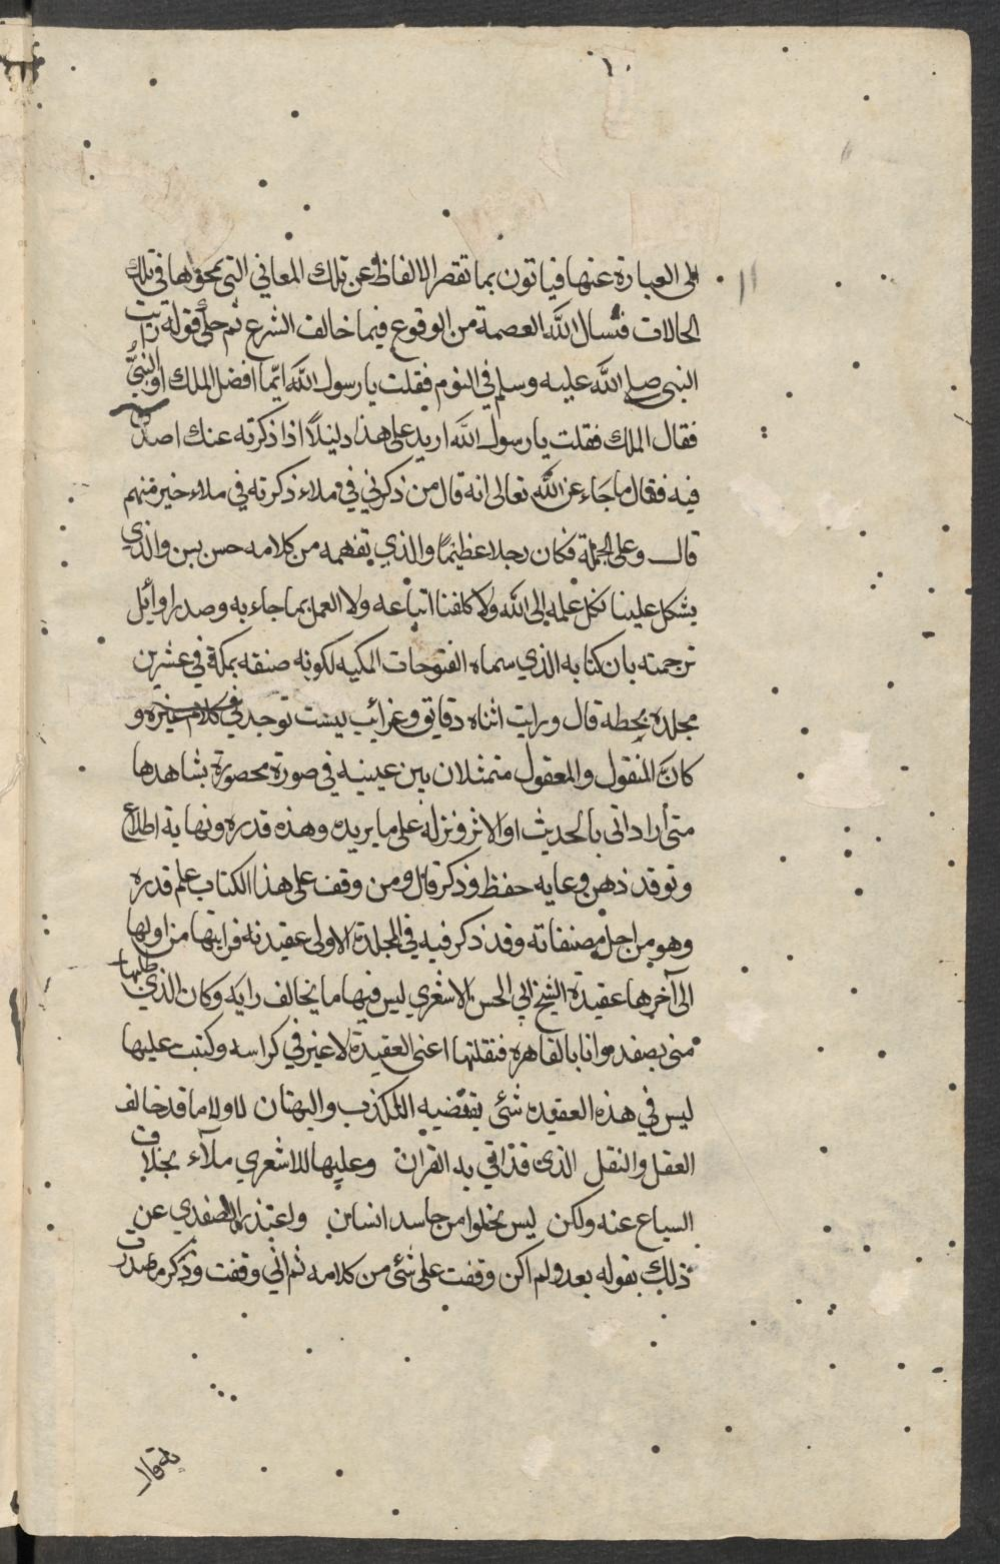 ١٠
١١
الى العبارة عنها فياتون بما تقصر الالفاظ عن تلك المعاني التي لمحوها في تلك
الحالات فنسال الله العصمة من الوقوع فيما خالف الشرع ثم حكى قوله رايت
النبي صلى الله عليه وسلم في النوم فقلت يا رسول الله ايما افضل الملك او النبيّ
فقال الملك فقلت يا رسول الله اريد على هذا دليلاً اذا ذكرته عنك اصدق
فيه فقال ما جاء عن الله تعالى انه قال من ذكرني في ملاء ذكرته في ملاء خير منهم
قال وعلى الجملة فكان رجلا عظيمًا والذي يفهمه من كلامه حسن بين والذي
يشكل علينا نكل علمه الى الله ولا كلفنا اتباعه ولا العمل بما جاء به وصدر اوائل
ترجمته بان كتابه الذي سماه الفتوحات المكيه لكونه صنفه بمكة في عشرين
مجلدة بخطه قال ورايت اثناه دقايق وغرائب ليست توجد في كلام غيره و
كانّ المنقول والمعقول متمثلان بين عينيه في صورة محصورة يشاهدها
متى اراد اتى بالحديث او الاثر ونزله على ما يريده وهذه قدره ونهاية اطلاع
وتوقد ذهن وعايه حفظ وذكر قال ومن وقف على هذا الكتاب علم قدره
وهو من اجل مصنفاته وقد ذكر فيه في المجلدة الاولى عقيدته فرايتها من اولها
الى آخرها عقيدة الشيخ ابي الحسن الاشعري ليس فيها ما يخالف رايه وكان الذي طلبها
مني بصفد وانا بالقاهره فنقلتها اعني العقيدة لا غير في كراسه وكتبت عليها
ليس في هذه العقيده شئ يقتضيه التكذب والبهتان لا ولا ما قد خالف
العقل والنقل الذى قد اتي به القرآن وعليها للاشعري مدآء بخلاف
السباع عنه ولكن ليس يخلوا من حاسد انسان واعتذر الصفدي عن
ذلك بقوله بعد ولم اكن وقفت على شئ من كلامه ثم اني وقفت وذكر